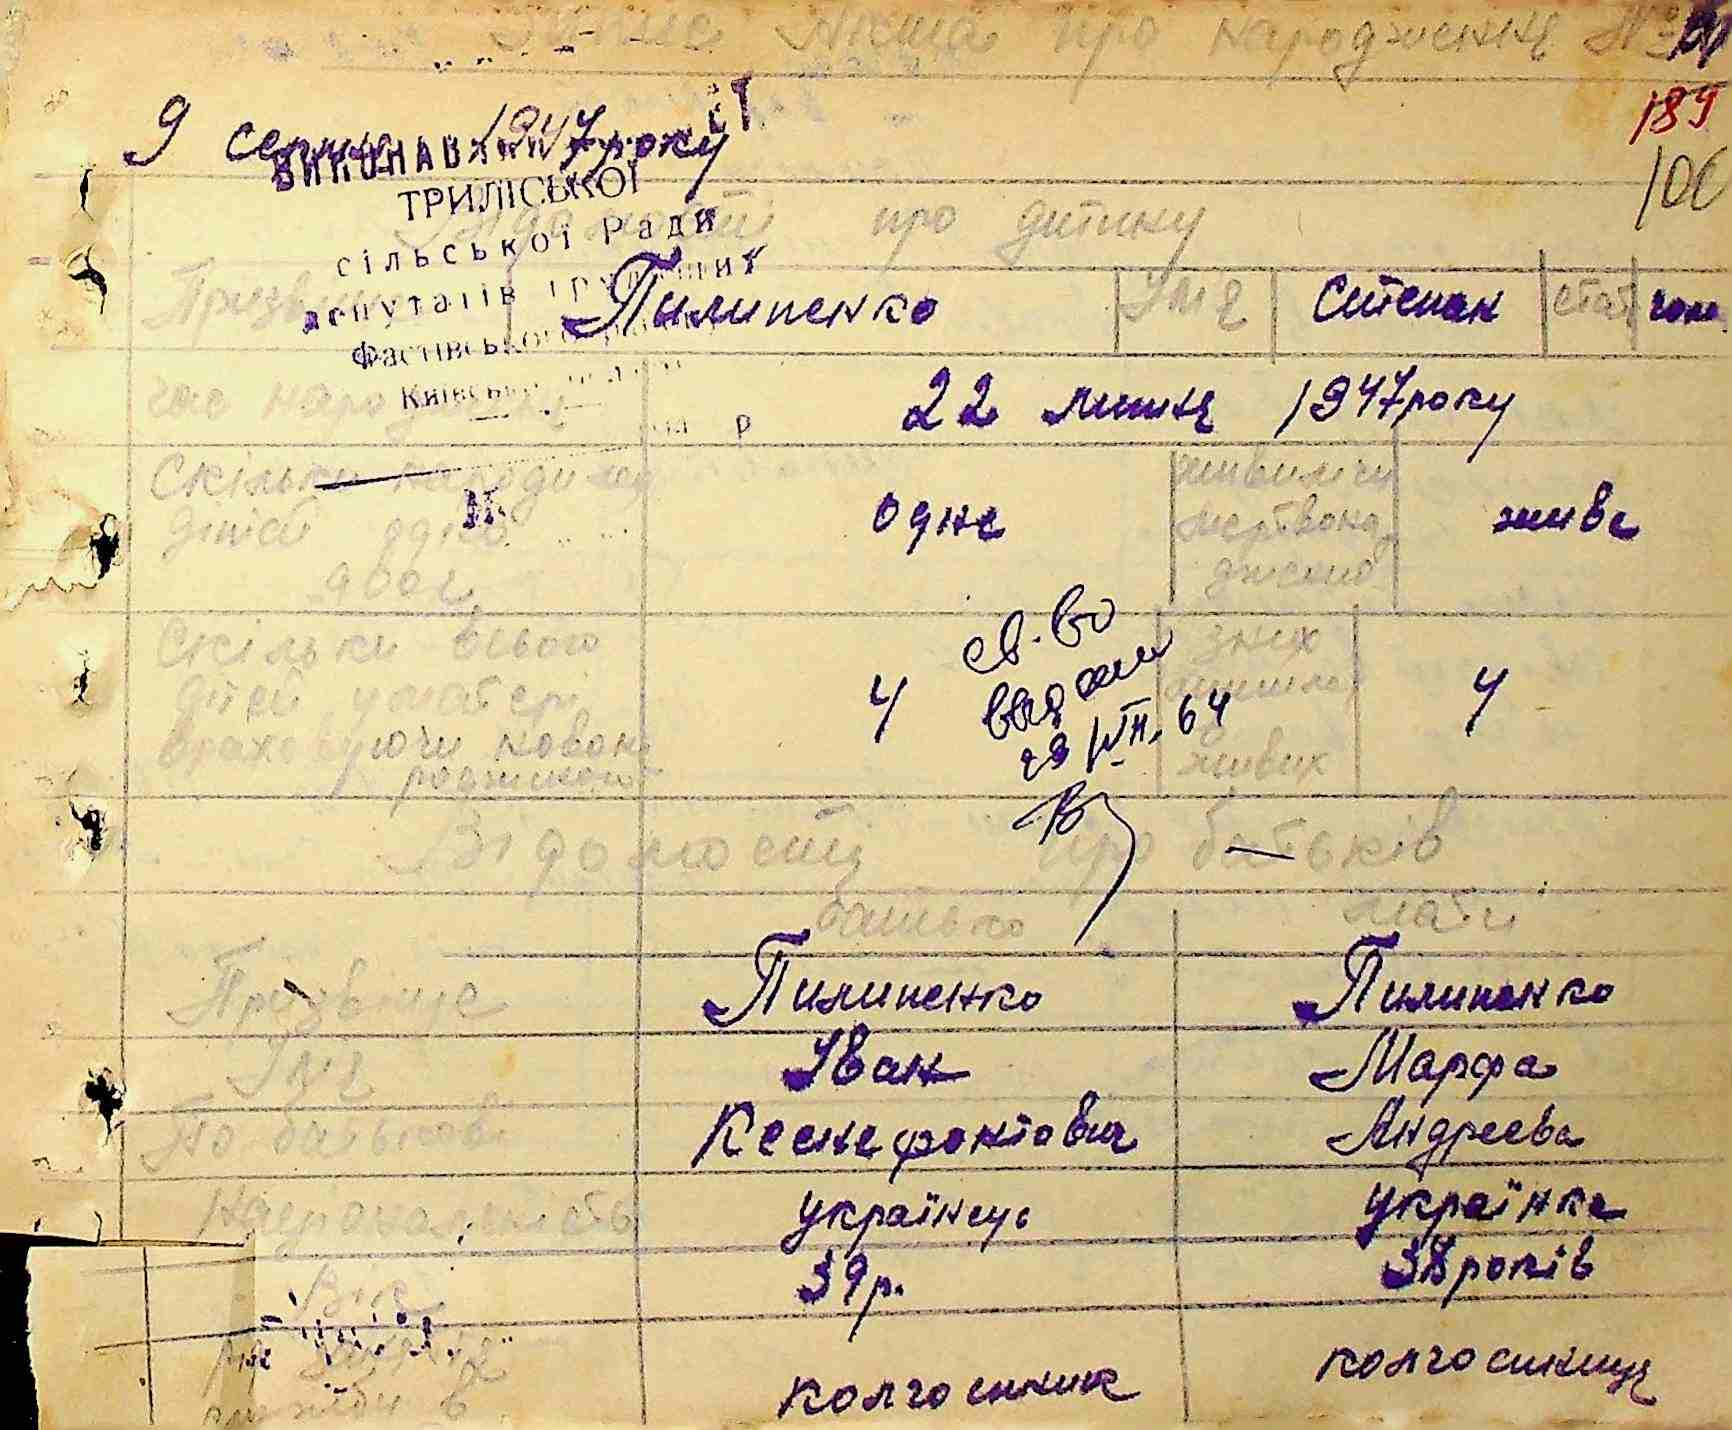 про народження №
189
9 серпня 1947 року
ВИКОНАВЧИЙ
106
ТРИЛІСЬКОЇ
сільської Ради
депутатів трудящих
Фастівського
Київської
Відомості про дитину
Прізвище Пилипенко Імя Степан стать чол.
час народження 22 липня 1947 року
Скільки народилось дітей одно живим чи мертвонародженно живе
Скільки всього дітей у матері враховуючи новонародженного 4 з них живих 4
св-во
выдани
29/VII. 64
Відомості про батьків
батько мати
Прізвище Пилипенко Пилипенко
Імя Іван Марфа
По батькові Ксенефонтович Андреева
Національність українець українка
Вік 39 р. 38 років
колгоспник колгоспниця